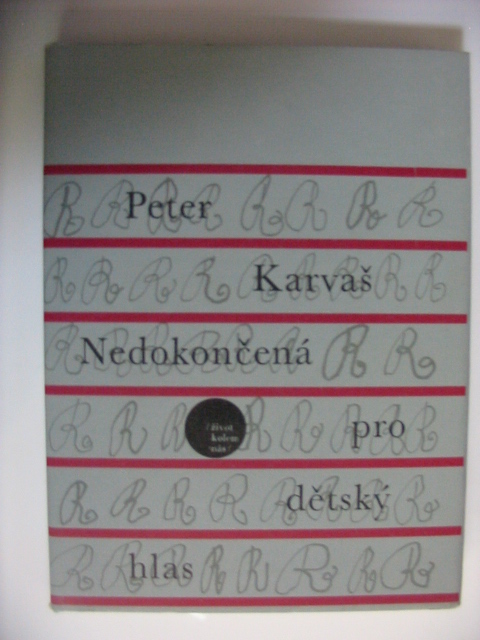 Peter
Karvaš
Nedokončená
/život
kolem
nás/
pro
dětský
hlas